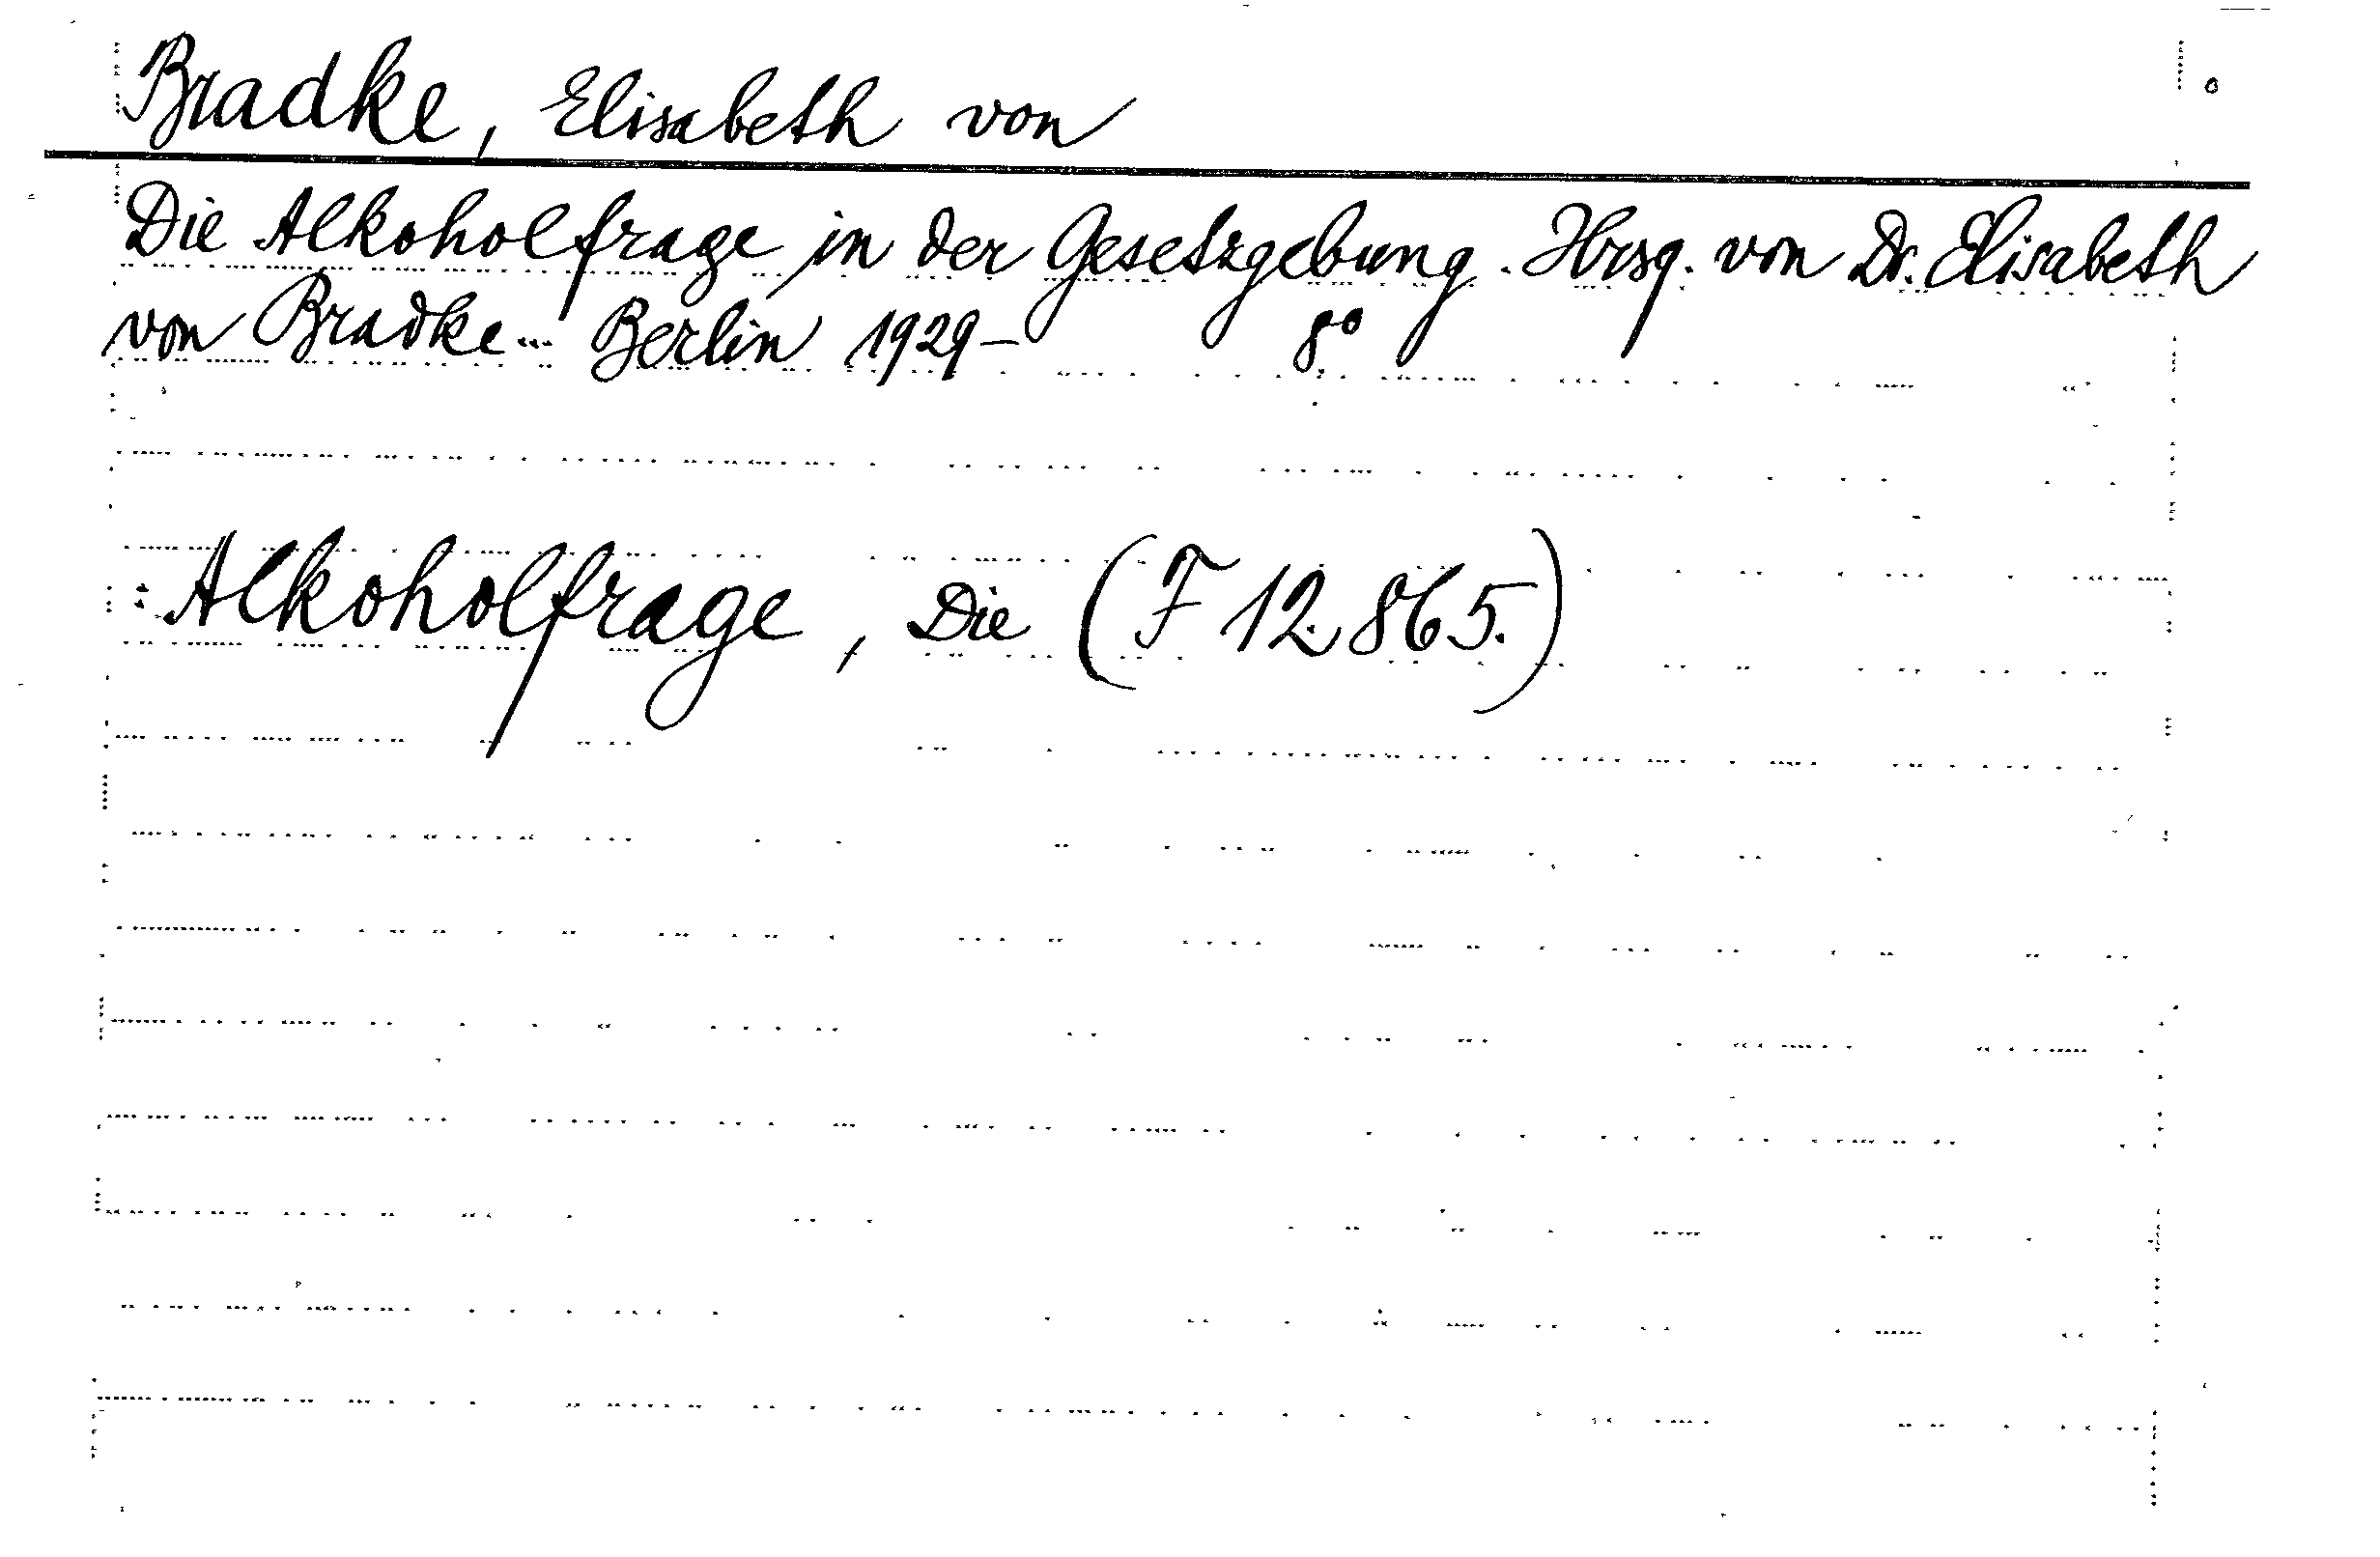 Bradke, Elisabeth von
Die Alkoholfrage in der Gesetzgebung. Hrsg. von Dr. Elisabeth
von Bradke... Berlin 1929- 8°.
: Alkoholfrage, Die (F 12.865.)